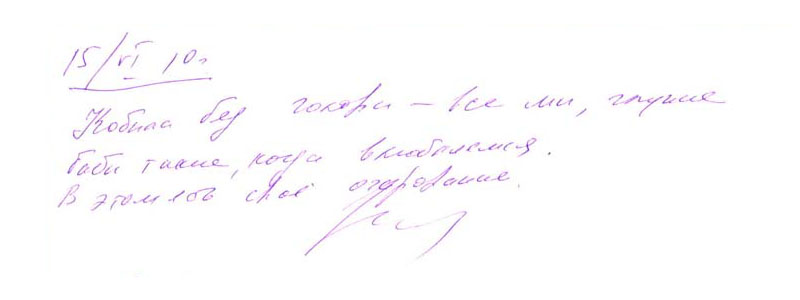 15/VI 10г
Кобила без голови – все ми, глупие
баби такие, когда влюбляемся.
В этом есть своё очарование.